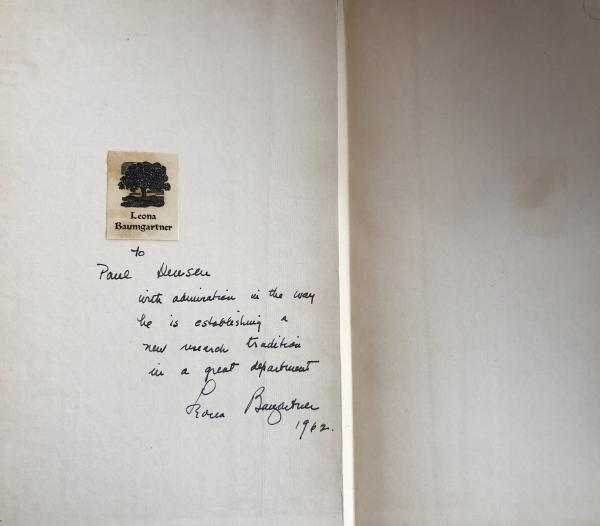 Leona
Baumgartner
To
Paul Densen
with admiration in the way
he is establishing a
new research tradition
in a great department
Leona Baumgartner
1962.